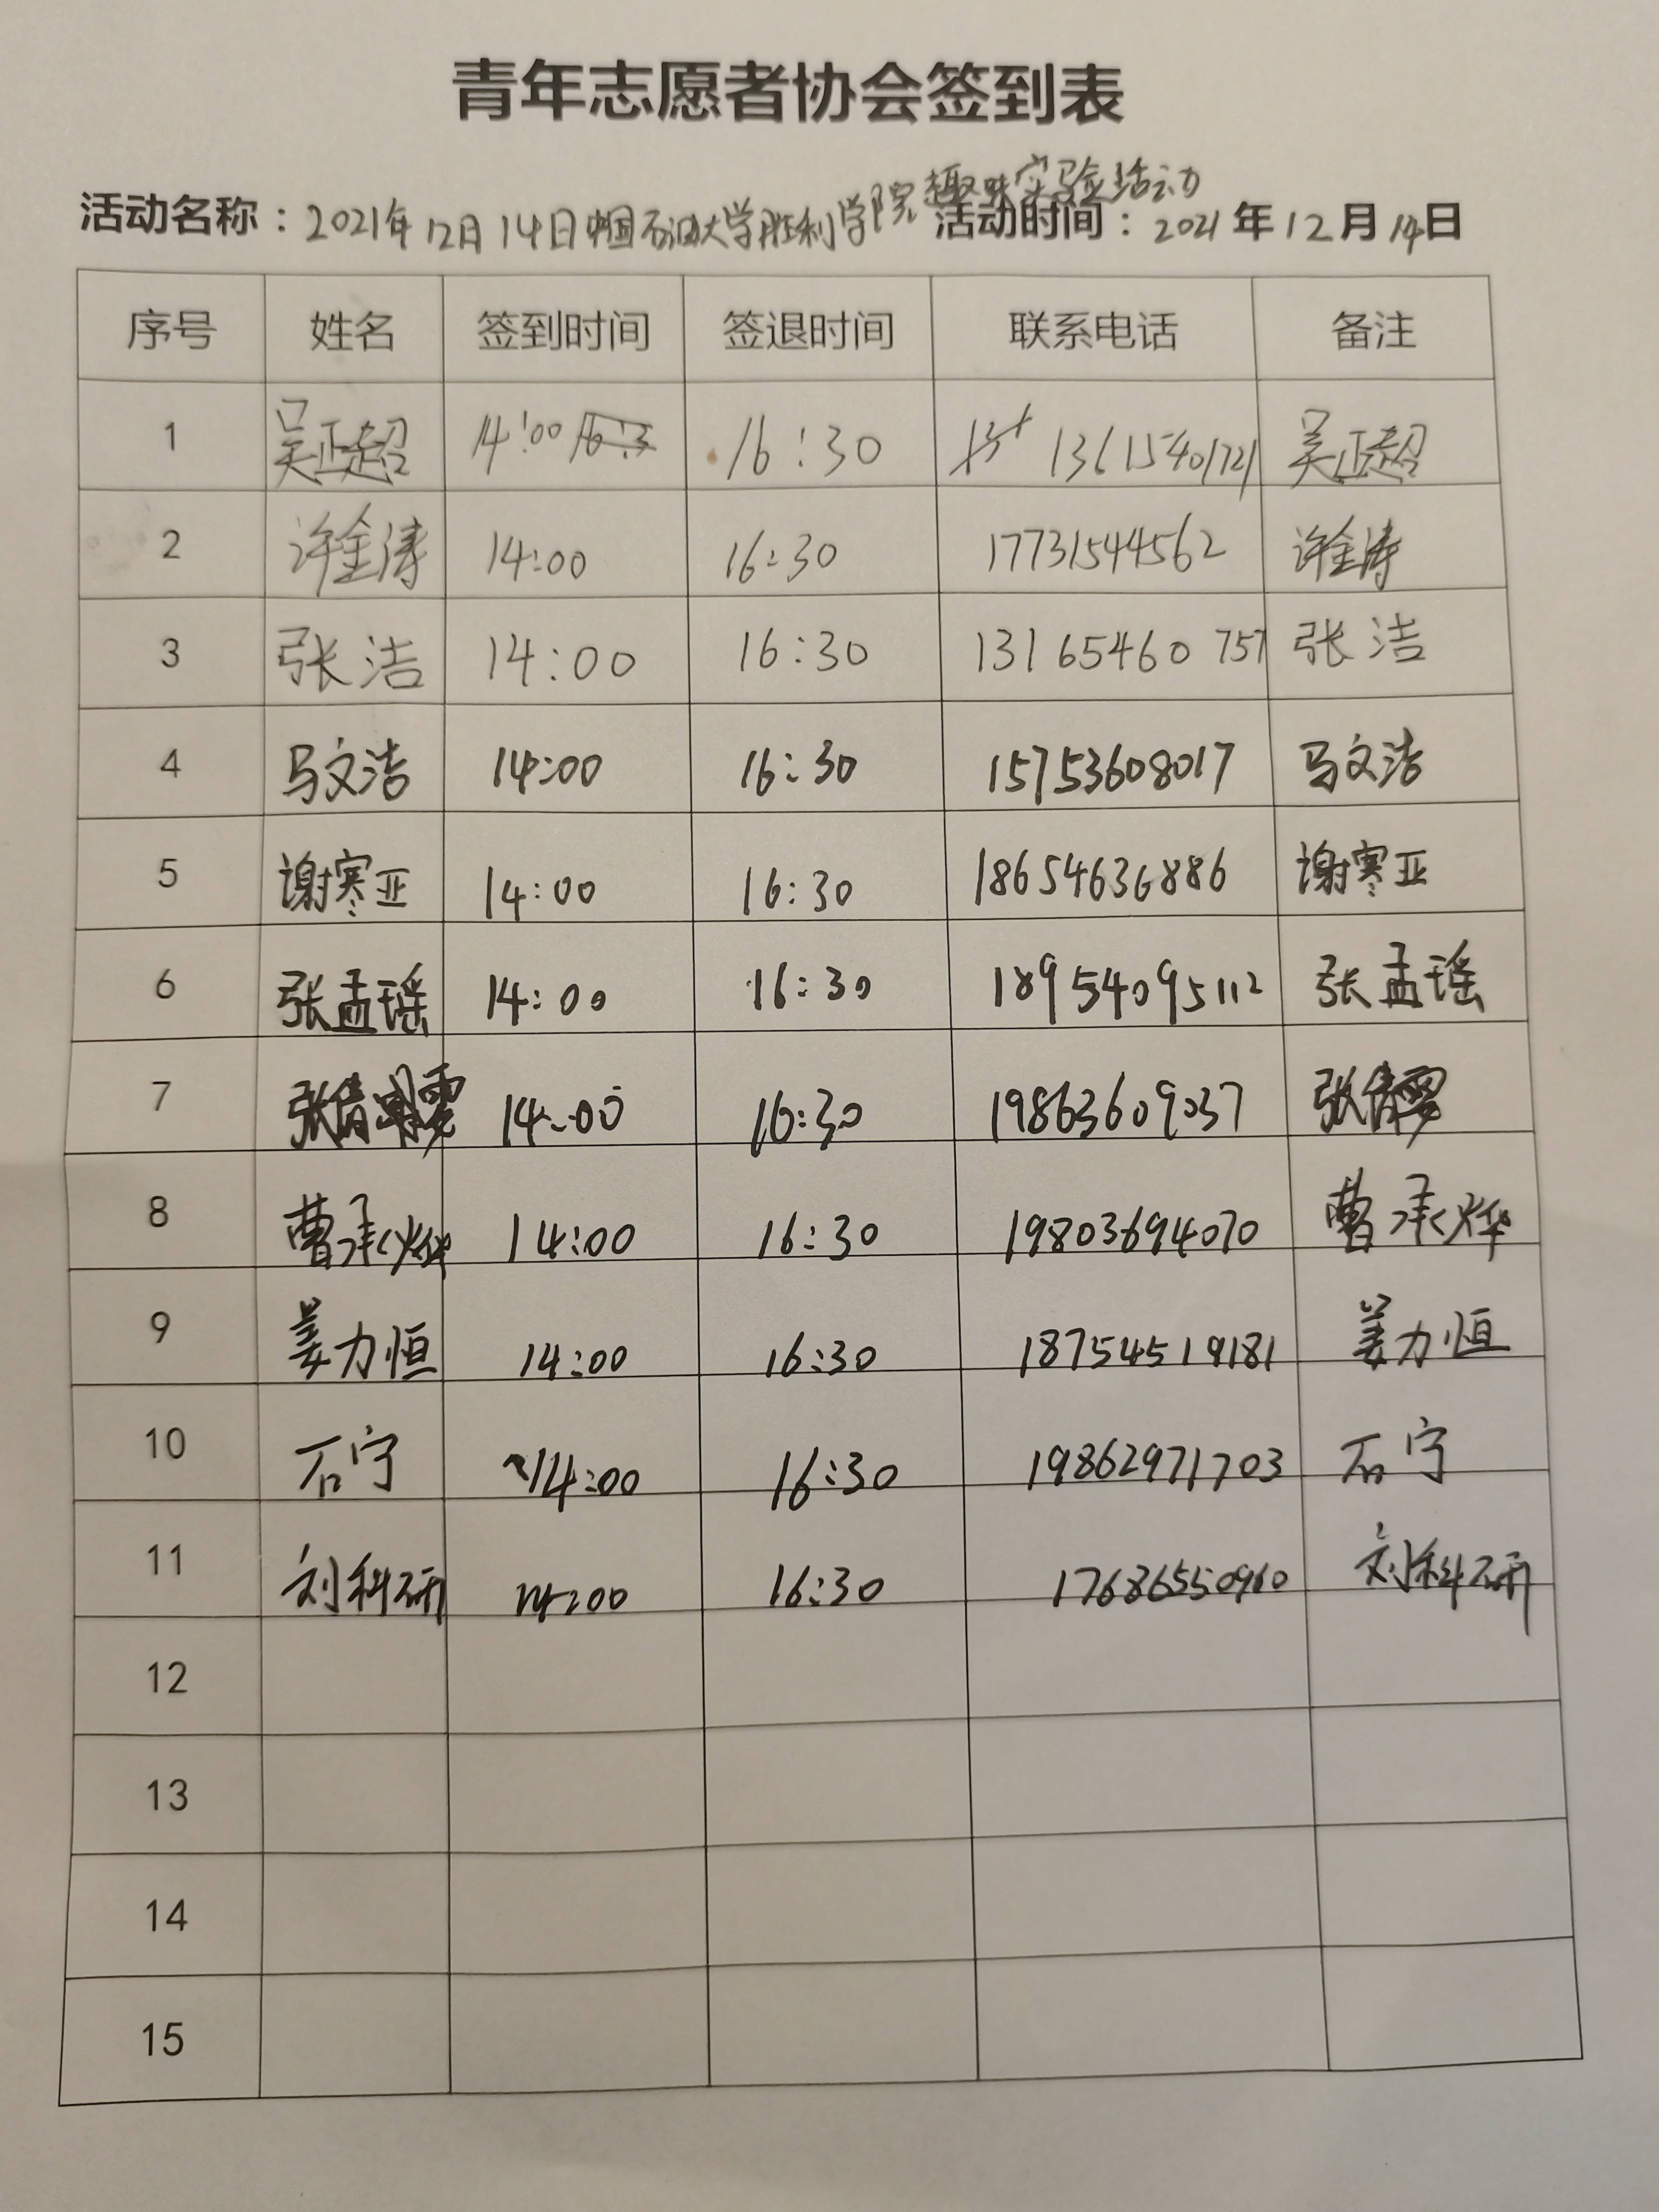 青年志愿者协会签到表
活动名称：2021年12月14日中国石油大学胜利学院趣味实验活动 活动时间：2021年12月14日
序号 姓名 签到时间 签退时间 联系电话 备注
1 吴正超 14:00 16:30 13615401721 吴正超
2 许金涛 14:00 16:30 17731544562 许金涛
3 张洁 14:00 16:30 13165460757 张洁
4 马文洁 14:00 16:30 15753608017 马文洁
5 谢寒亚 14:00 16:30 18654636886 谢寒亚
6 张孟瑶 14:00 16:30 18954095112 张孟瑶
7 张倩雯 14:00 16:30 19863609037 张倩雯
8 曹承烨 14:00 16:30 19803694070 曹承烨
9 姜力恒 14:00 16:30 18754519181 姜力恒
10 石宁 14:00 16:30 19862971703 石宁
11 刘科研 14:00 16:30 17686550960 刘科研
12
13
14
15